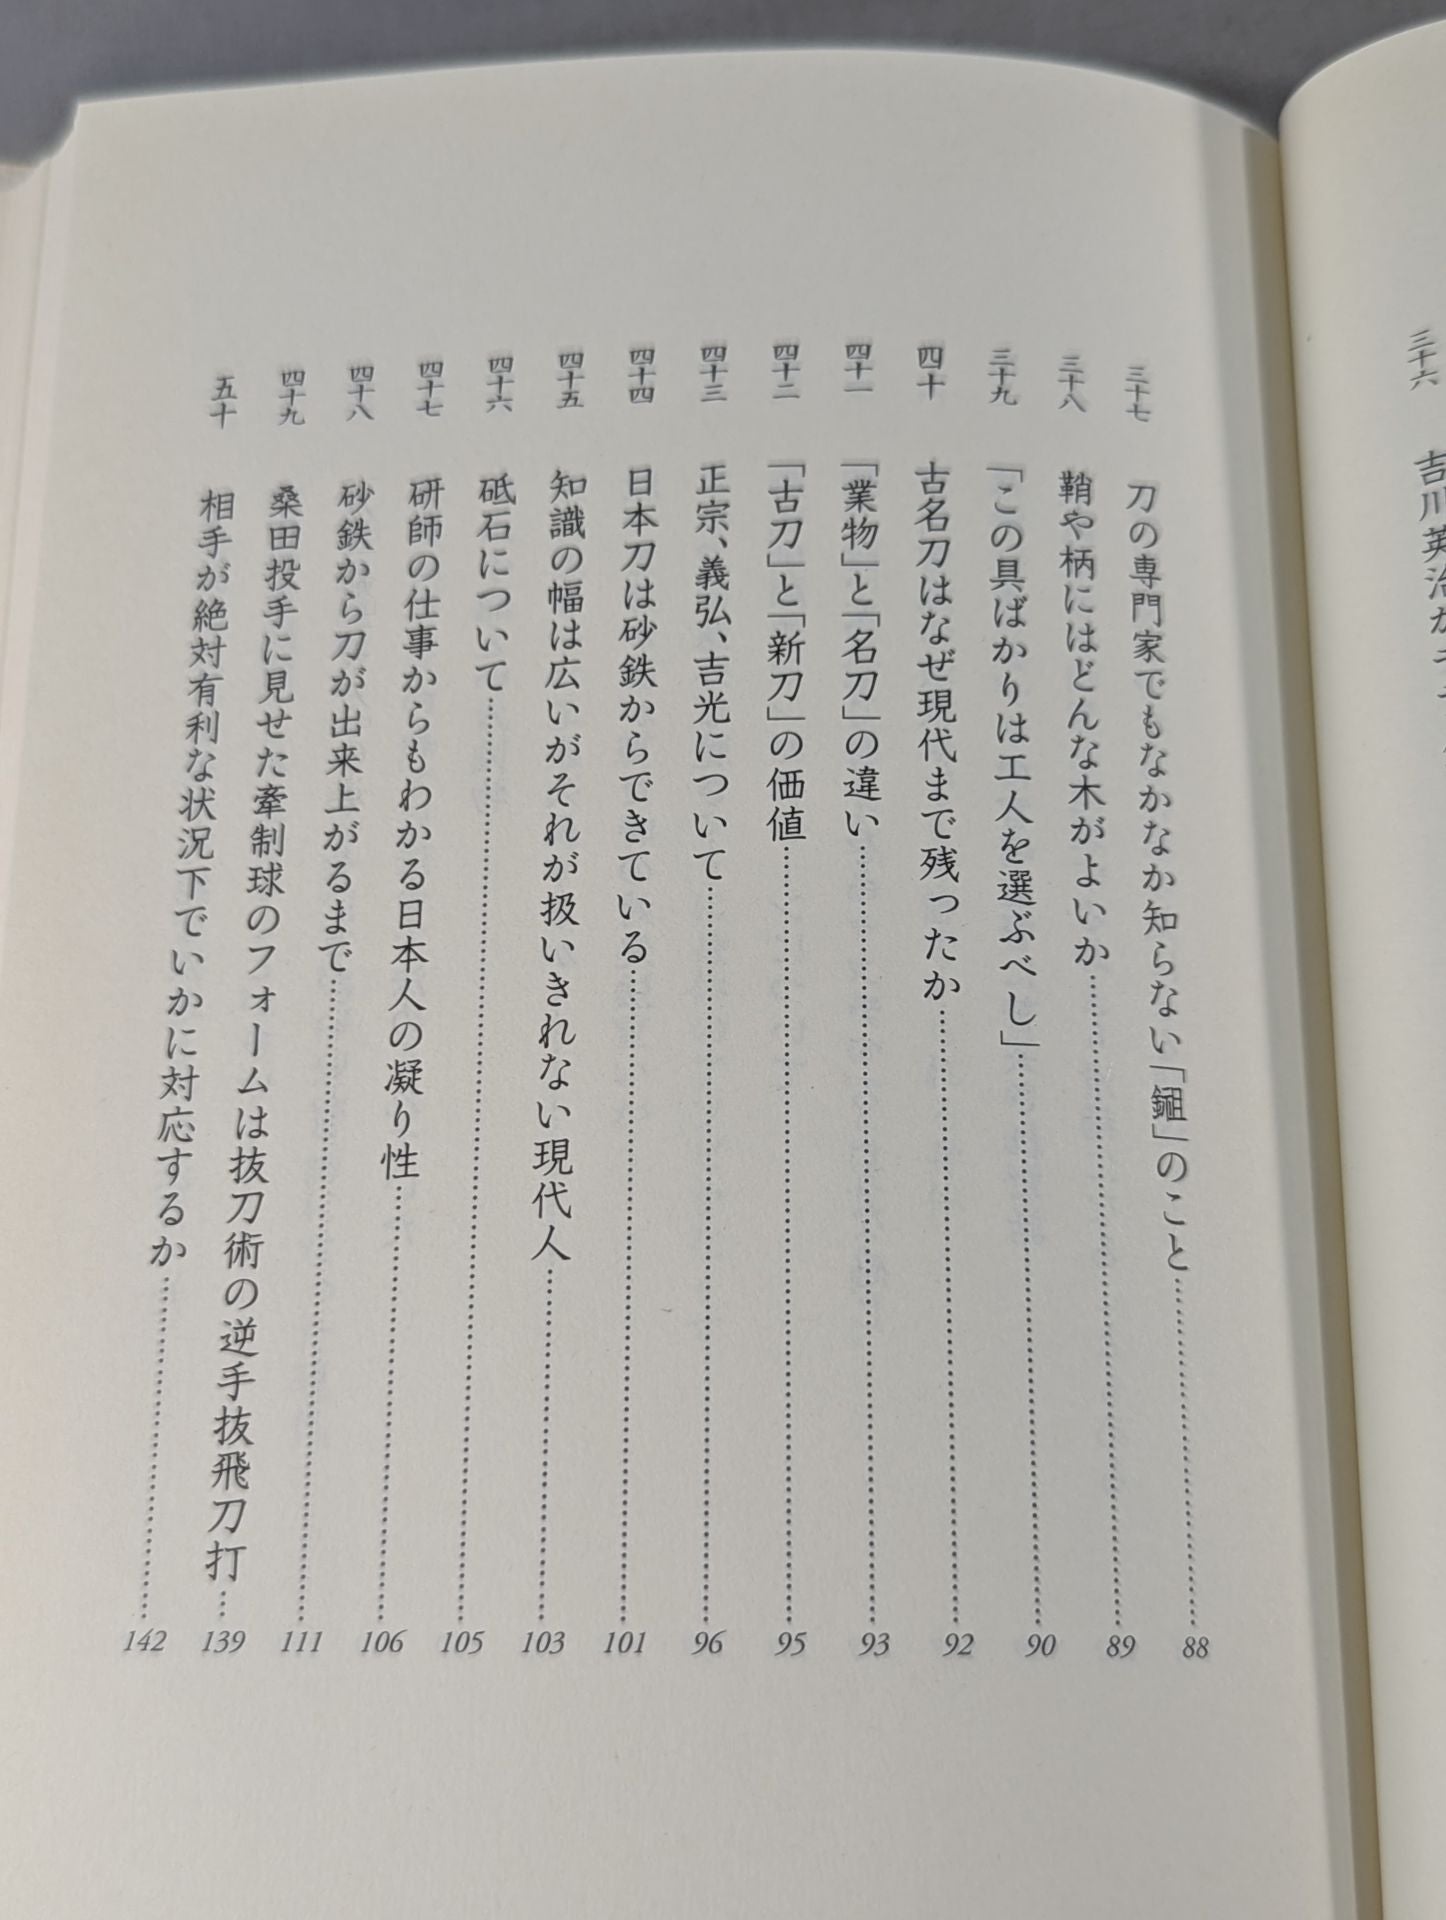 三十六 吉川英治が
三十七 刀の専門家でもなかなか知らない「鎺」のこと 88
三十八 鞘や柄にはどんな木がよいか 89
三十九 「この具ばかりは工人を選ぶべし」 90
四十 古名刀はなぜ現代まで残ったか 92
四十一 「業物」と「名刀」の違い 93
四十二 「古刀」と「新刀」の価値 95
四十三 正宗、義弘、吉光について 96
四十四 日本刀は砂鉄からできている 101
四十五 知識の幅は広いがそれが扱いきれない現代人 103
四十六 砥石について 105
四十七 研師の仕事からもわかる日本人の凝り性 106
四十八 砂鉄から刀が出来上がるまで 111
四十九 桑田投手に見せた牽制球のフォームは抜刀術の逆手抜飛刀打 139
五十 相手が絶対有利な状況下でいかに対応するか 142